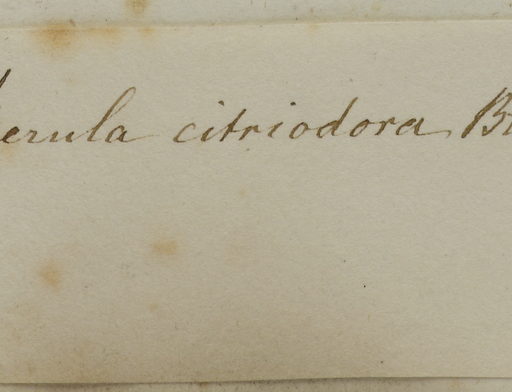 erula citriodora B